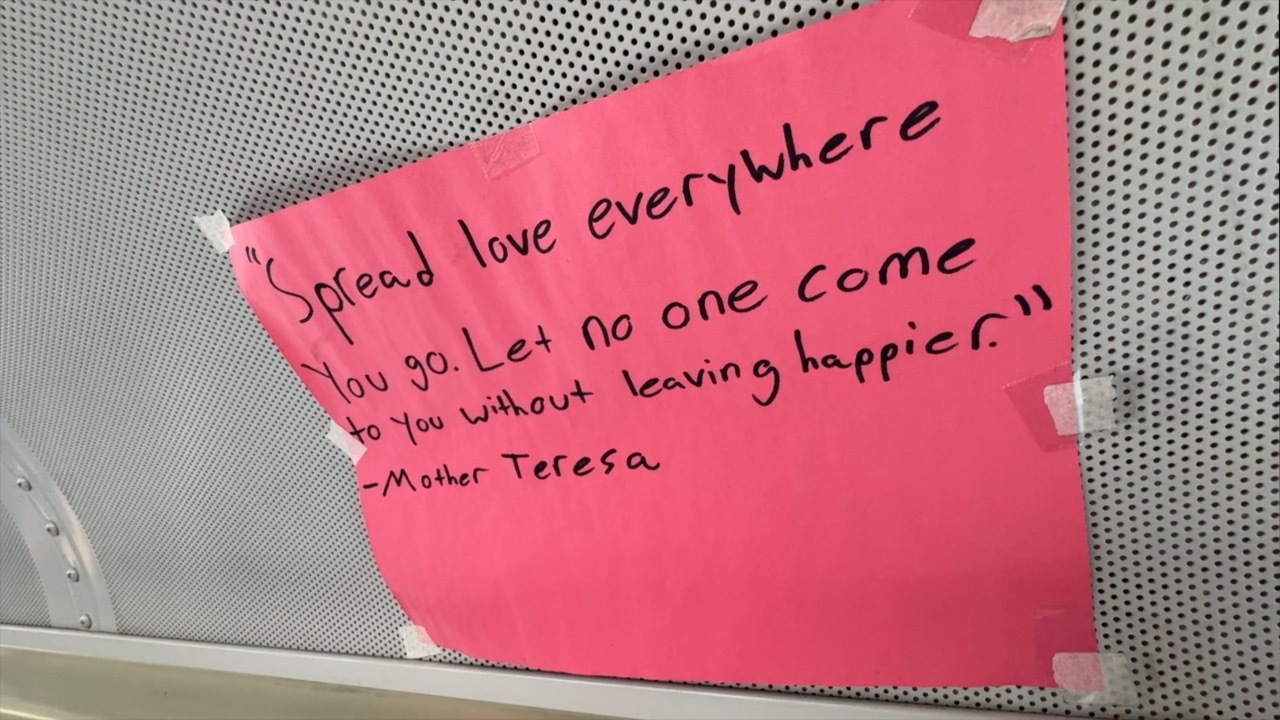 "Spread love everywhere
You go. Let no one come
to you without leaving happier."
-Mother Teresa